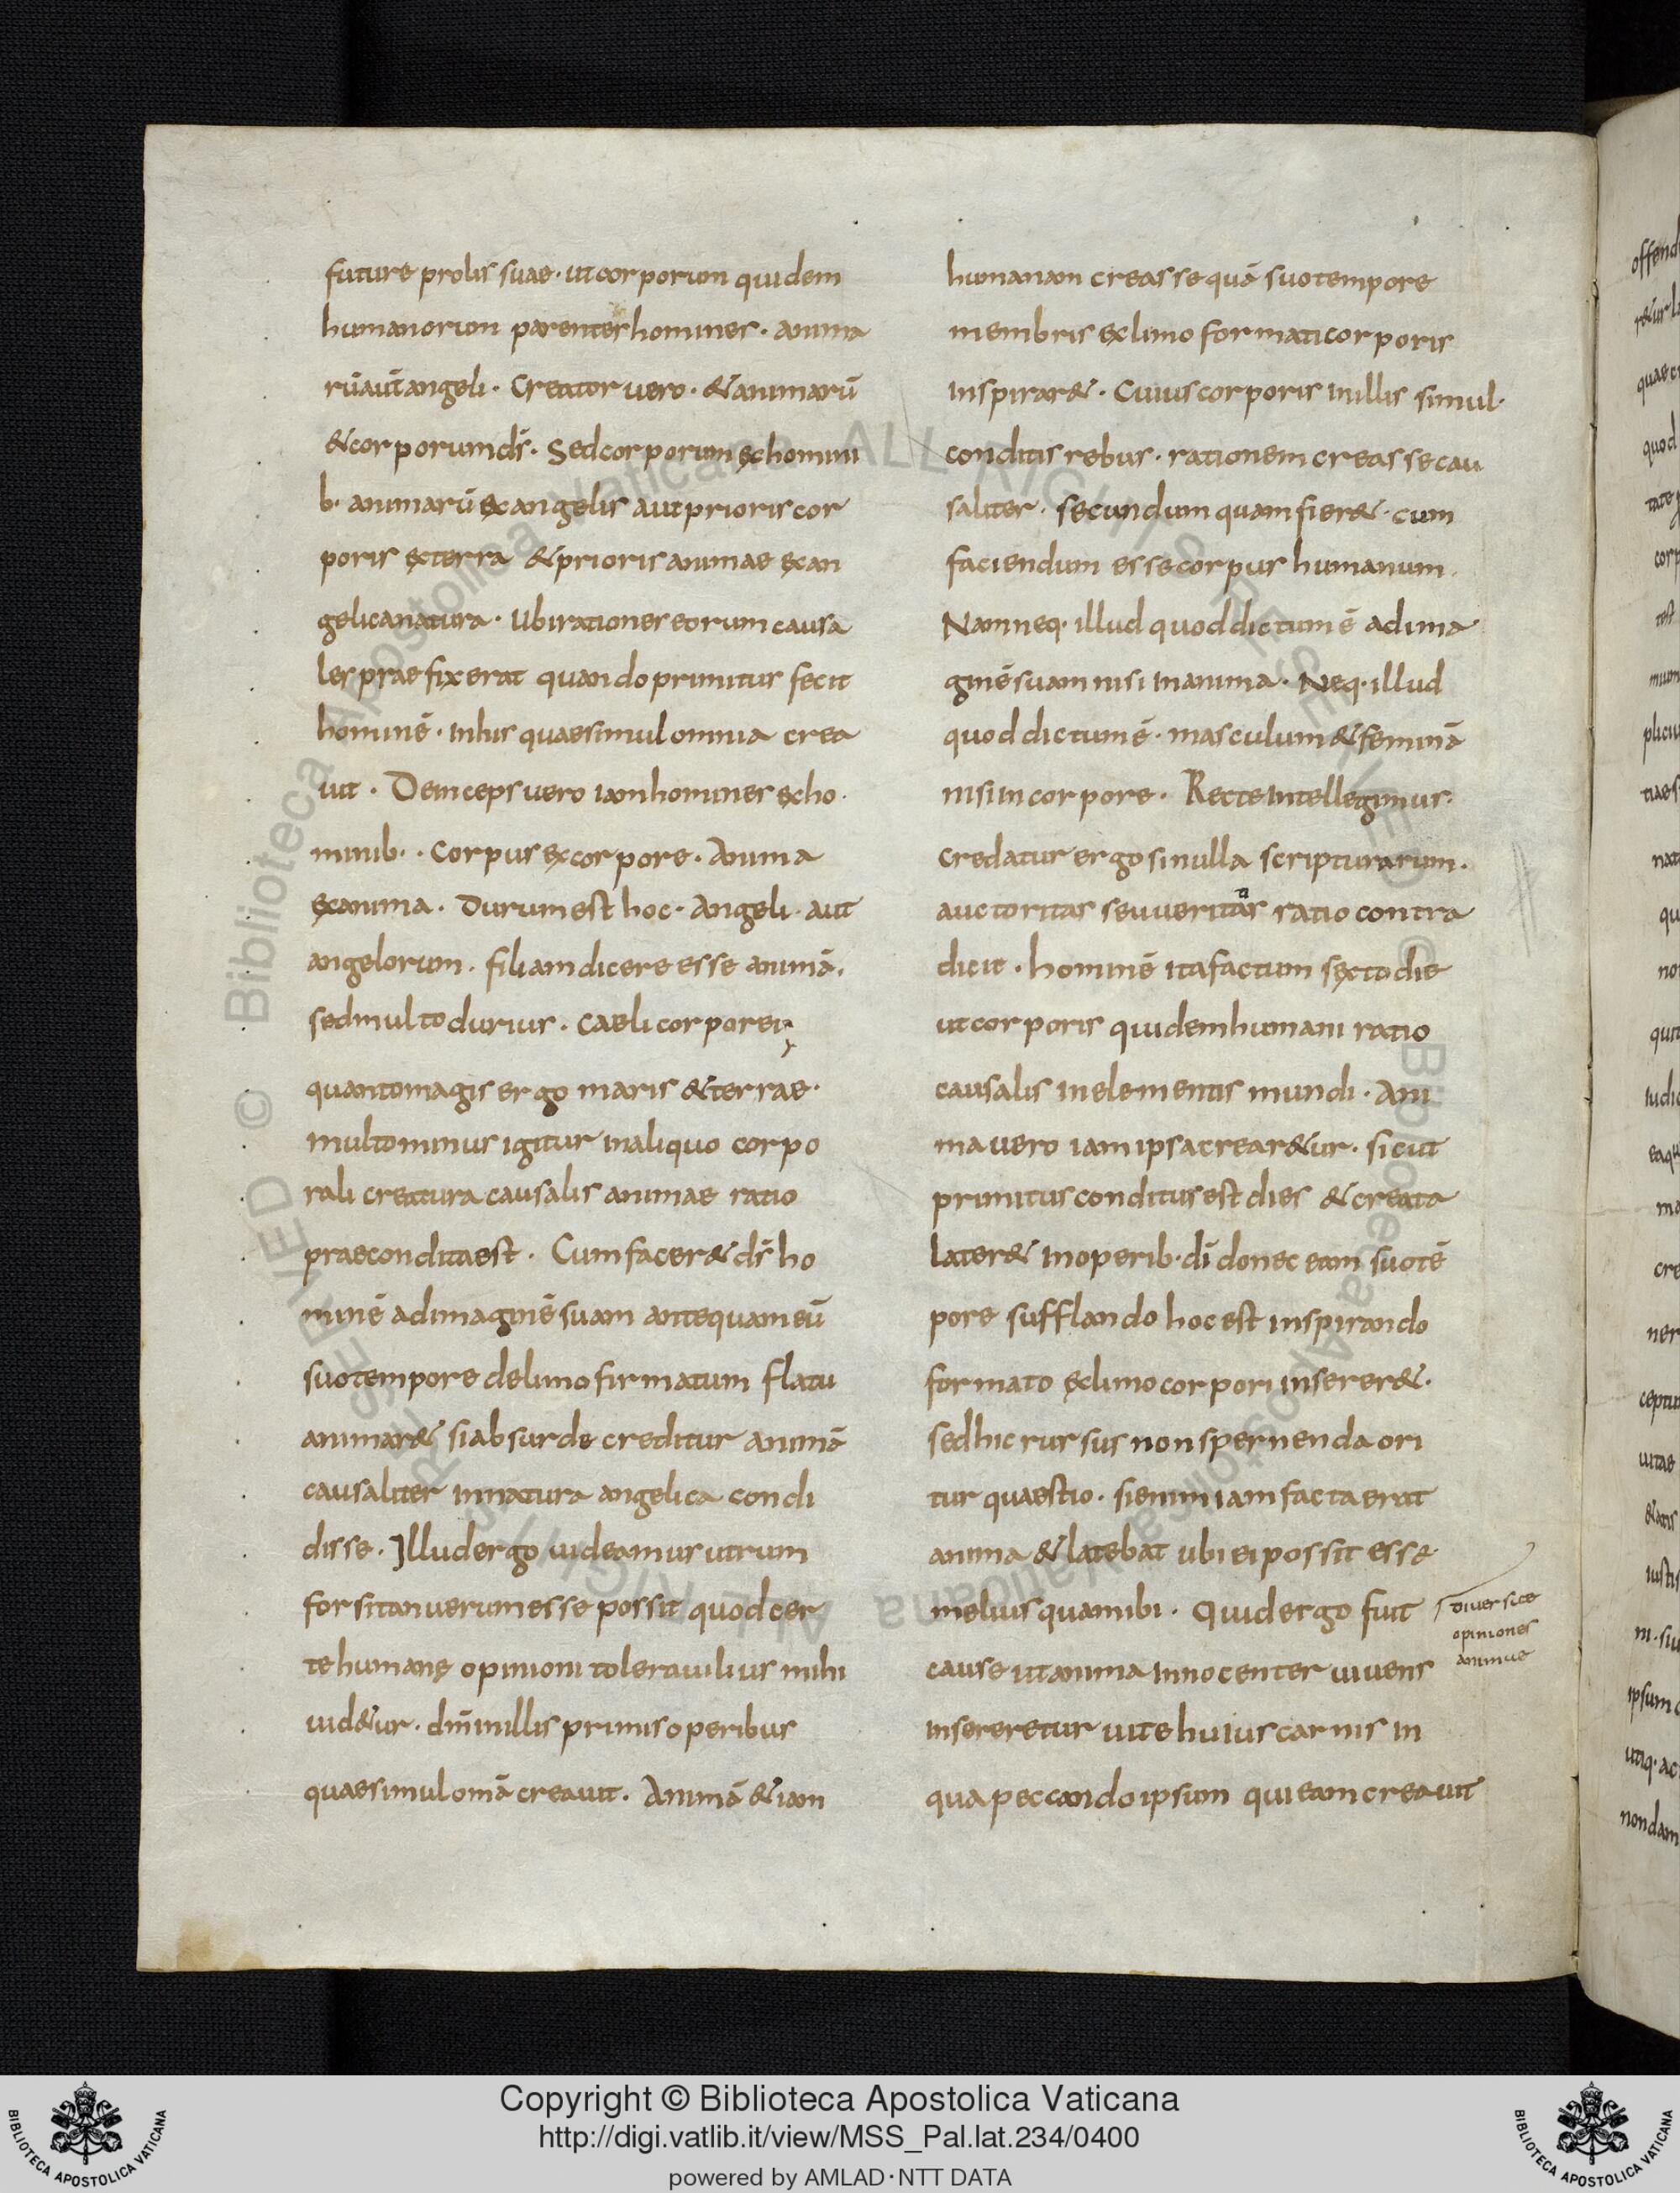 future prolis suae · ut corporum quidem
humanorum parentes homines · anima
rū aut̄ angeli · Creator uero · & animarū
& corporum ds̄ · Sed corporum ex homini
b· animarū ex angelis aut prioris cor
poris ex terra & prioris animae ex an
gelica natura · Ubi rationes eorum causa
les praefixerat quando primitus fecit
hominē · in his quae simul omnia crea
uit · Deinceps uero iam homines ex ho·
minib· · Corpus ex corpore · Anima
ex anima · Durum est hoc · Angeli · aut
angelorum · filiam dicere esse animā ·
sed multo durius · caeli corporei;
quanto magis ergo maris & terrae ·
multo minus igitur in aliquo corpo
rali creatura causalis animae ratio
praecondita est · Cum facer& ds̄ ho
minē ad imaginē suam antequam eū
suo tempore de limo firmatum flatu
animar& si absurde creditur animā
causaliter in natura angelica condi
disse · Illud ergo uideamus utrum
forsitan uerum esse possit quod cer
te humanę opinioni tolerauilius mihi
uid&ur · dm̄ in illis primis operibus
quae simul omā creauit · Animā &iam
humanam creasse quā suo tempore
membris ex limo formati corporis
inspirar& · Cuius corporis in illis simul ·
conditis rebus · rationem creasse cau
saliter · secundum quam fier& · cum
faciendum esse corpus humanum ·
Nam neq· illud quod dictum ē ad ima
ginē suam nisi in anima · Neq· illud
quod dictum ē · masculum & feminā
nisi in corpore · Recte intellegimus ·
Credatur ergo si nulla scripturarum ·
auctoritas seu ueritatis ratio contra
dicit · hominē ita factum sexto die
ut corporis quidem humani ratio
causalis in elementis mundi · Ani
ma uero iam ipsa crear&ur · sicut
primitus conditus est dies & creata
later& in operib· dī donec eam suo tē
pore sufflando hoc est inspirando
formato ex limo corpori inserer& ·
sed hic rursus non spernenda ori
tur quaestio · si enim iam facta erat
anima & latebat ubi ei possit esse
melius quam ibi · Quid ergo fuit
cause ut anima innocenter uiuens
insereretur uite huius carnis in
qua peccando ipsum qui eam creauit
opiniones
animae
Copyright © Biblioteca Apostolica Vaticana
http://digi.vatlib.it/view/MSS_Pal.lat.234/0400
powered by AMLAD·NTT DATA
BIBLIOTECA APOSTOLICA VATICANA
BIBLIOTECA APOSTOLICA VATICANA